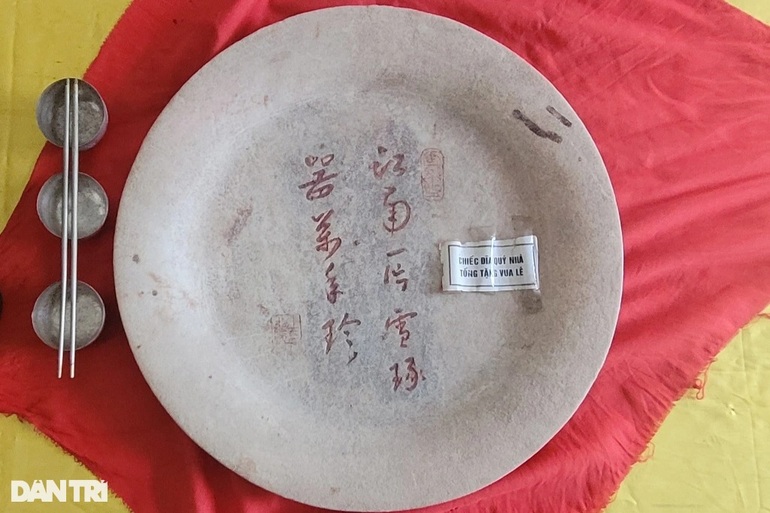 江南一片雪琢
器萬年珍
CHIẾC ĐĨA QUÝ NHÀ
TỐNG TẶNG VUA LÊ
DÂN TRÍ